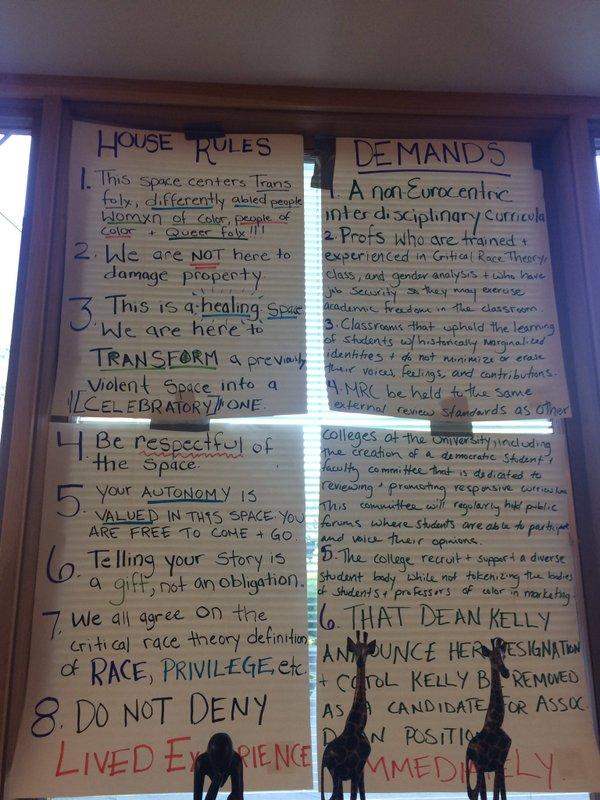 HOUSE RULES
1. This space centers Trans
folx, differently abled people
Womxn of Color, people of
color + Queer folx!!!
2. We are NOT here to
damage property.
3. This is a healing space
We are here to
TRANSFORM a previously
violent space into a
CELEBRATORY ONE.
4. Be respectful of
the space.
5. YOUR AUTONOMY IS
VALUED IN THIS SPACE. YOU
ARE FREE TO COME + GO.
6. Telling your story is
a gift, not an obligation.
7. We all agree on the
critical race theory definition
of RACE, PRIVILEGE, etc.
8. DO NOT DENY
LIVED EXPERIENCE
DEMANDS
1. A non-Eurocentric
interdisciplinary curricula
2. Profs who are trained +
experienced in Critical Race Theory,
class, and gender analysis + who have
job security so they may exercise
academic freedom in the classroom.
3. Classrooms that uphold the learning
of students w/historically marginalized
identities + do not minimize or erase
their voices, feelings, and contributions.
4. MRC be held to the same
external review standards as other
colleges at the University, including
the creation of a democratic student +
faculty committee that is dedicated to
reviewing + promoting responsive curriculum
This committee will regularly hold public
forums where students are able to participate
and voice their opinions.
5. The college recruit + support a diverse
student body while not tokenizing the bodies
of students + professors of color in marketing.
6. THAT DEAN KELLY
ANNOUNCE HER RESIGNATION
+ COTOL KELLY BE REMOVED
AS A CANDIDATE FOR ASSOC.
DEAN POSITION
IMMEDIATELY.